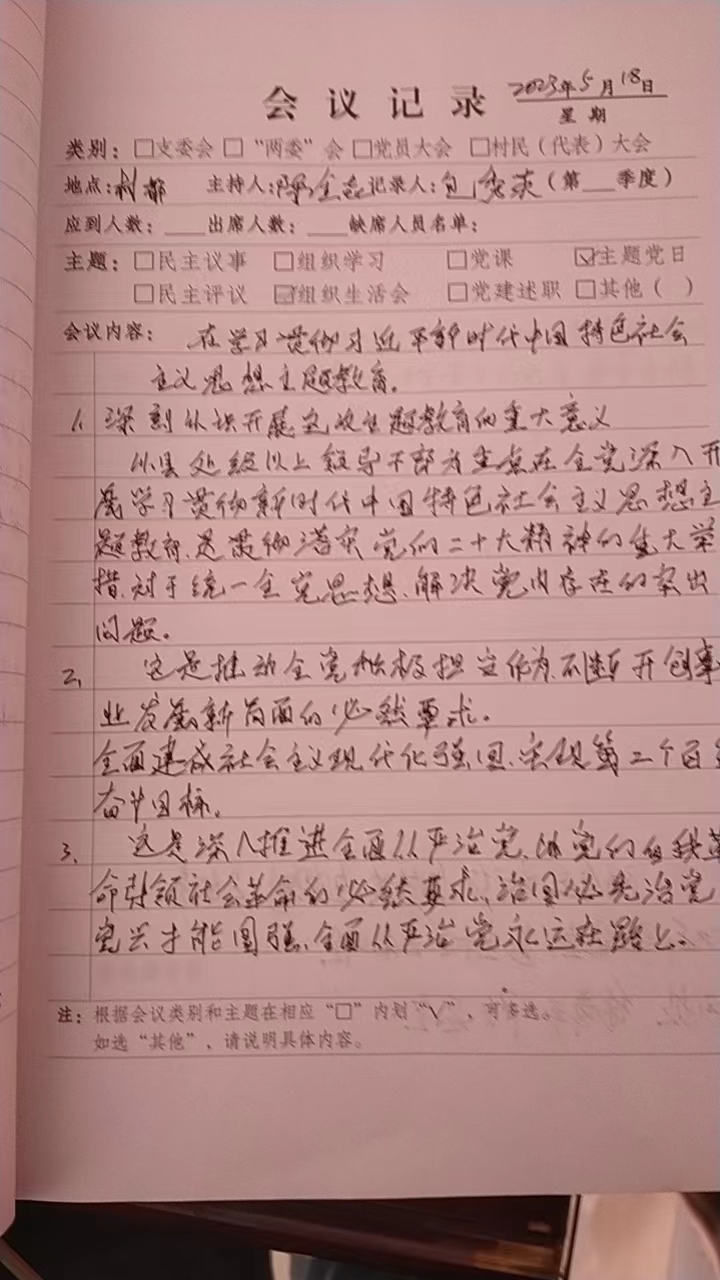 会议记录 2023年5月18日
星期
类别：□支委会 □“两委”会 □党员大会 □村民（代表）大会
地点：村部 主持人： 记录人： （第__季度）
应到人数：____出席人数：____缺席人员名单：
主题：□民主议事 □组织学习 □党课 ☑主题党日
□民主评议 ☑组织生活会 □党建述职 □其他（ ）
会议内容： 在学习贯彻习近平新时代中国特色社会
主义思想主题教育。
1、深刻认识开展这次主题教育的重大意义
以县处级以上领导干部为重点在全党深入开
展学习贯彻新时代中国特色社会主义思想主
题教育、是贯彻落实党的二十大精神的重大举
措、对于统一全党思想、解决党内存在的突出
问题。
2、这是推动全党积极担当作为、不断开创事
业发展新局面的必然要求。
全面建成社会主义现代化强国、实现第二个百
奋斗目标。
3、这是深入推进全面从严治党、以党的自我革
命引领社会革命的必然要求、治国必先治党
党兴才能国强、全面从严治党永远在路上。
注：根据会议类别和主题在相应“□”内划“√”，可多选。
如选“其他”，请说明具体内容。